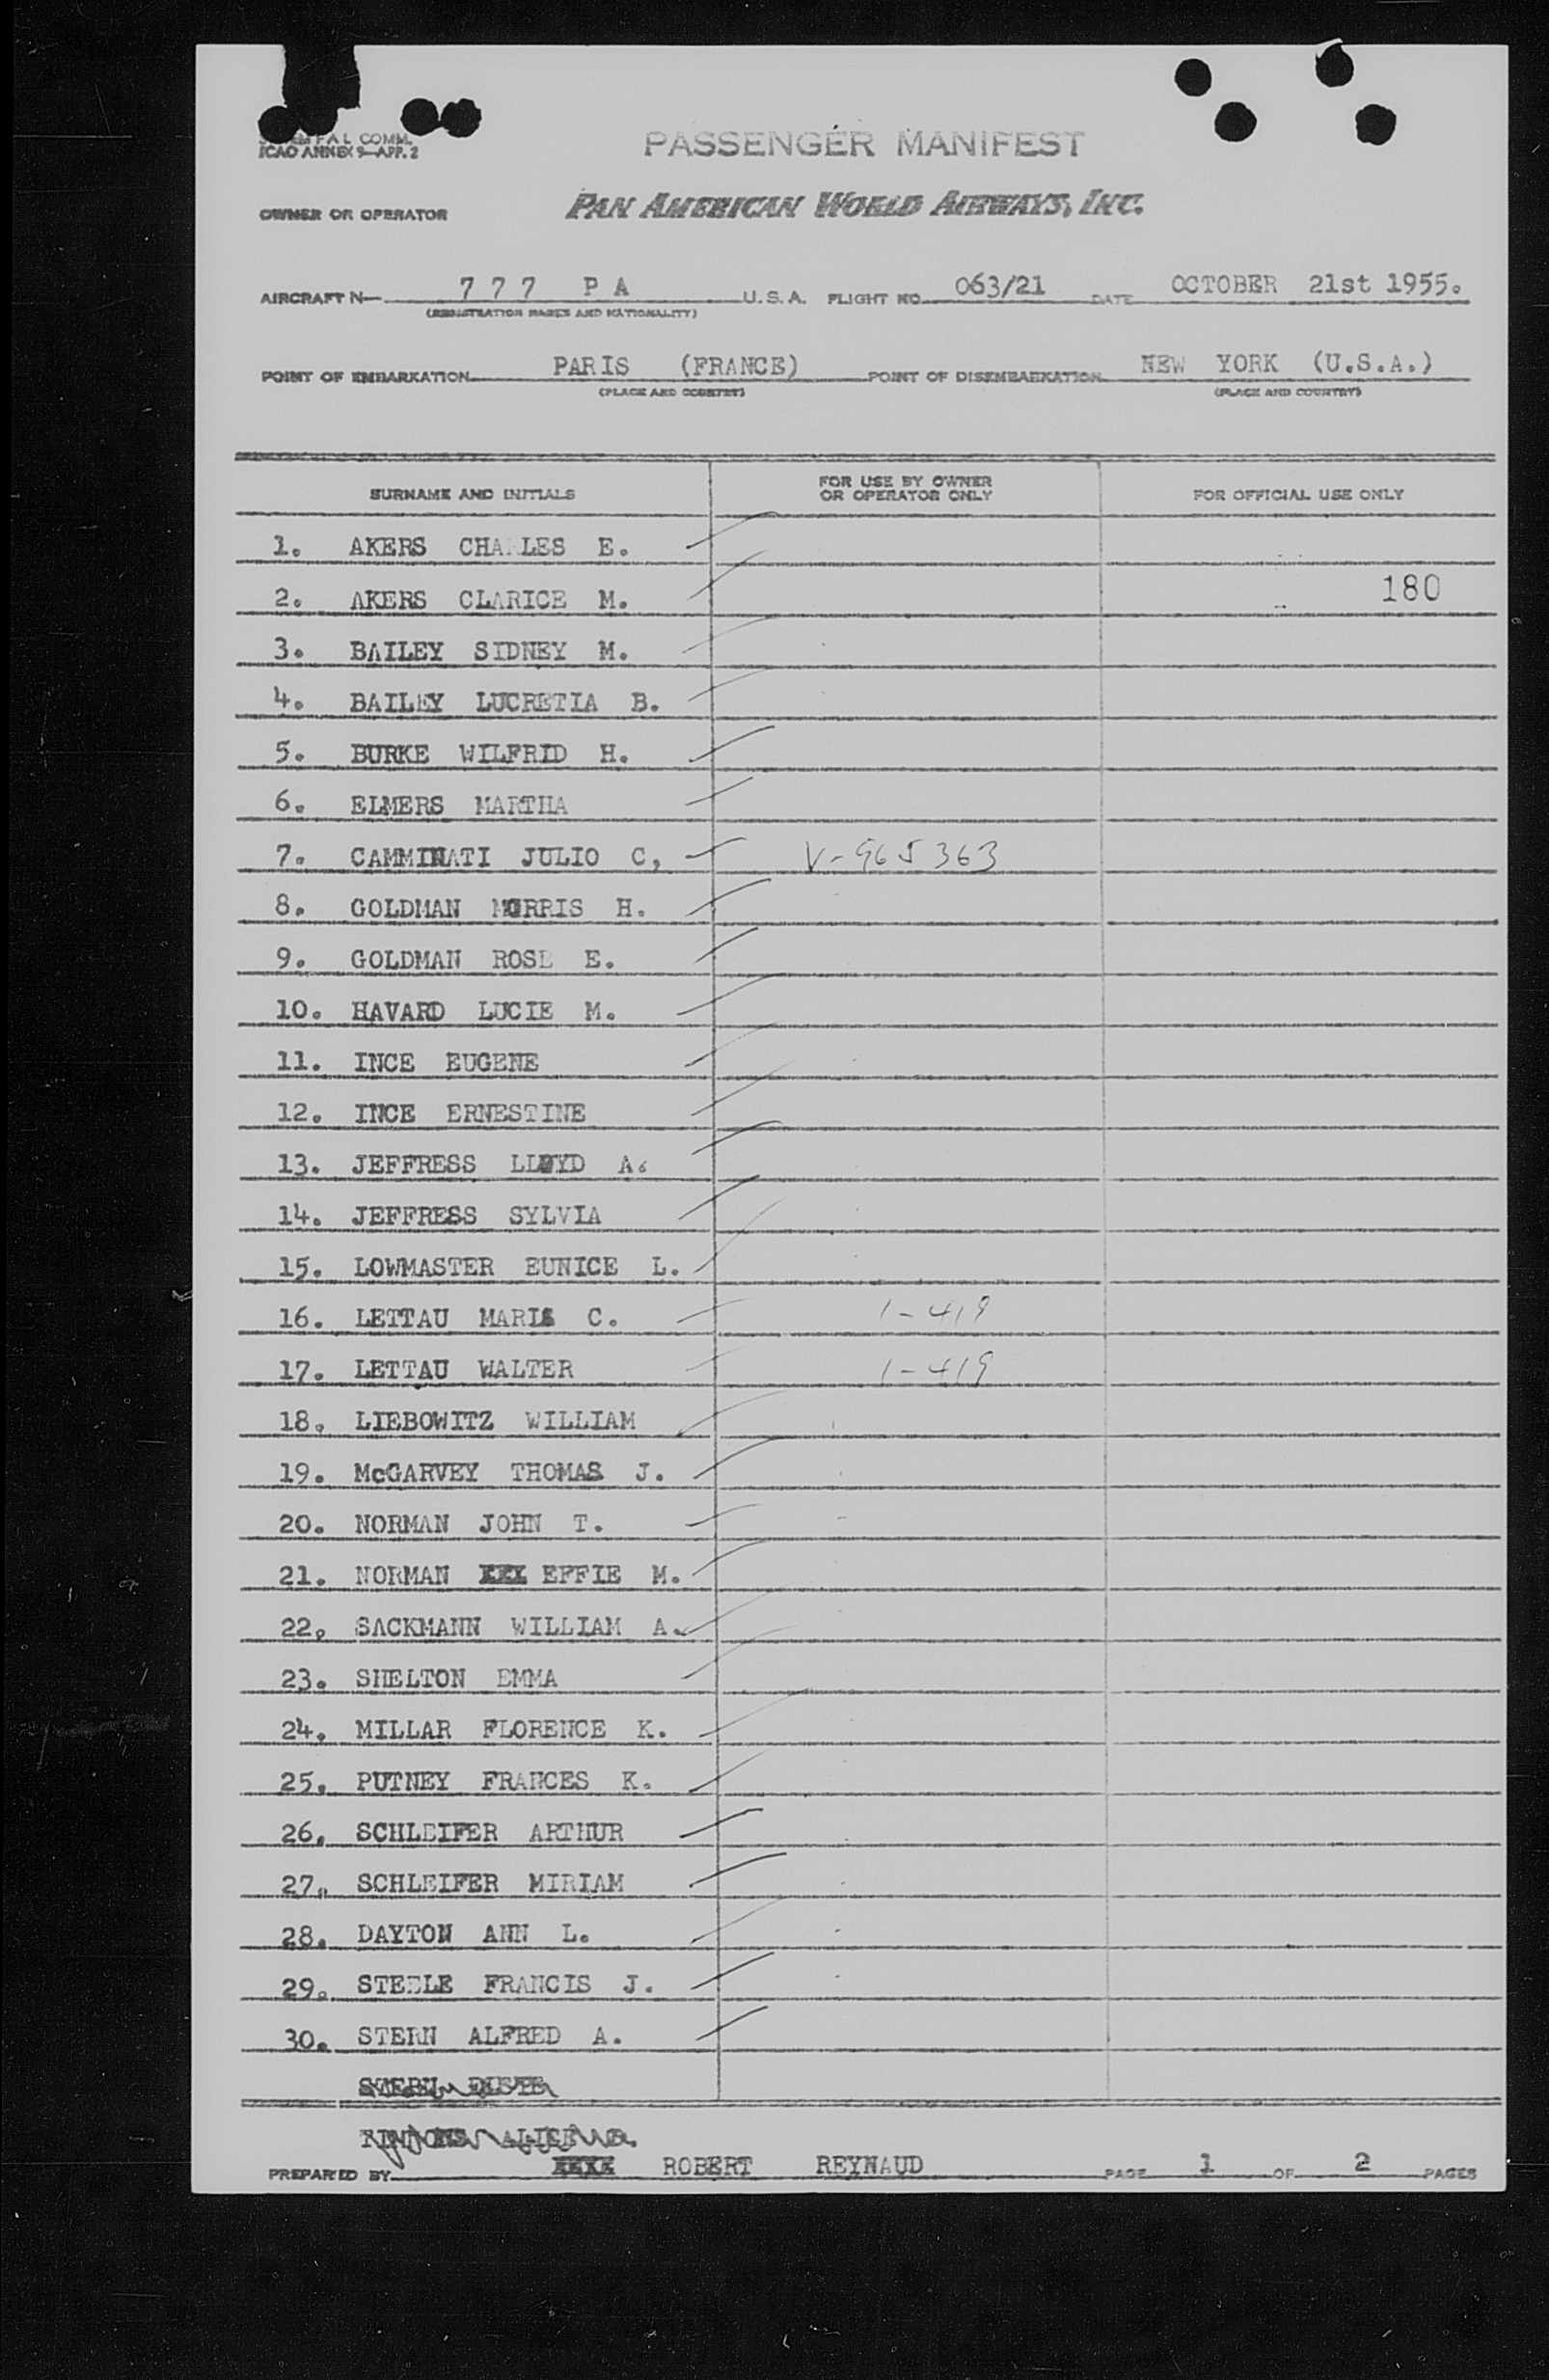 FAL COMM.
ICAO ANNEX 9—APP. 2
PASSENGER MANIFEST
OWNER OR OPERATOR PAN AMERICAN WORLD AIRWAYS, INC.
AIRCRAFT N— 7 7 7 P A U.S.A. FLIGHT NO. 063/21 DATE OCTOBER 21st 1955.
(REGISTRATION MARKS AND NATIONALITY)
POINT OF EMBARKATION PARIS (FRANCE) POINT OF DISEMBARKATION NEW YORK (U.S.A.)
(PLACE AND COUNTRY) (PLACE AND COUNTRY)
SURNAME AND INITIALS FOR USE BY OWNER OR OPERATOR ONLY FOR OFFICIAL USE ONLY
1. AKERS CHARLES E.
2. AKERS CLARICE M. 180
3. BAILEY SIDNEY M.
4. BAILEY LUCRETIA B.
5. BURKE WILFRID H.
6. ELMERS MARTHA
7. CAMMINATI JULIO C, V-965363
8. GOLDMAN MORRIS H.
9. GOLDMAN ROSE E.
10. HAVARD LUCIE M.
11. INCE EUGENE
12. INCE ERNESTINE
13. JEFFRESS LLOYD A.
14. JEFFRESS SYLVIA
15. LOWMASTER EUNICE L.
16. LETTAU MARIE C. 1-419
17. LETTAU WALTER 1-419
18. LIEBOWITZ WILLIAM
19. McGARVEY THOMAS J.
20. NORMAN JOHN T.
21. NORMAN XXX EFFIE M.
22. SACKMANN WILLIAM A.
23. SHELTON EMMA
24. MILLAR FLORENCE K.
25. PUTNEY FRANCES K.
26. SCHLEIFER ARTHUR
27. SCHLEIFER MIRIAM
28. DAYTON ANN L.
29. STEELE FRANCIS J.
30. STERN ALFRED A.
PREPARED BY XXXX ROBERT REYNAUD PAGE 1 OF 2 PAGES